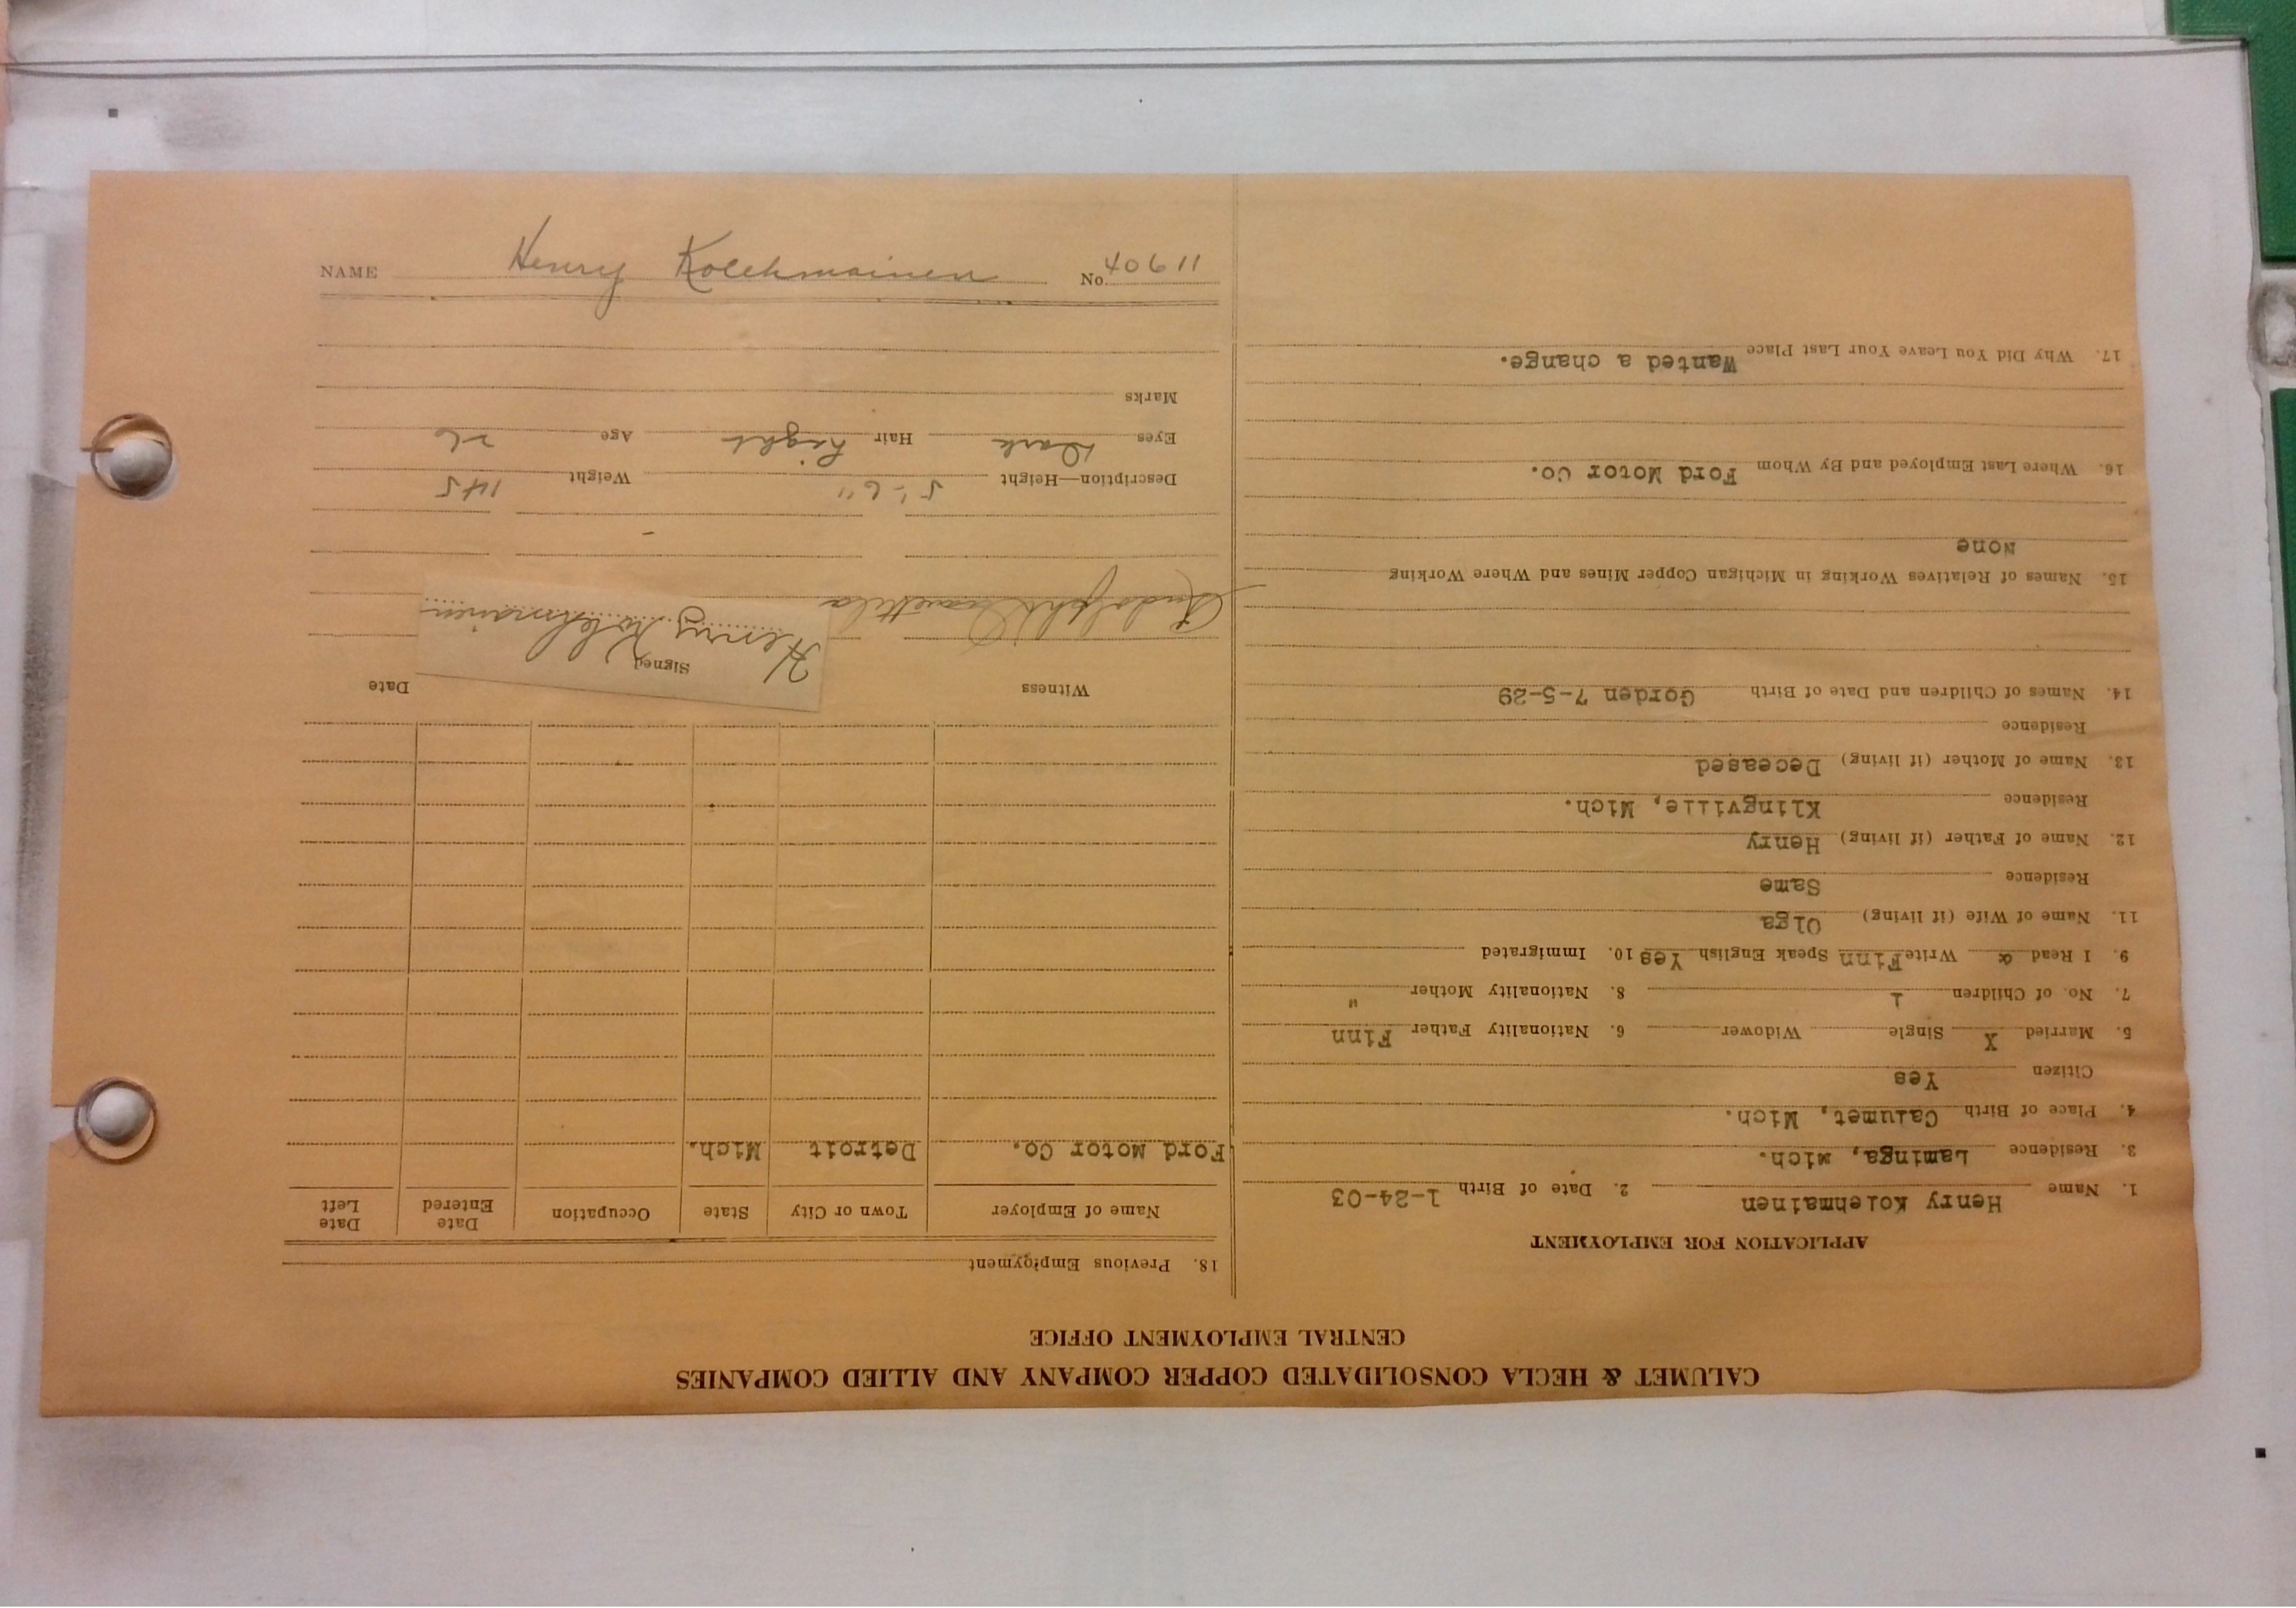 NAME Henry Kolehmainen No. 40611
CALUMET & HECLA CONSOLIDATED COPPER COMPANY AND ALLIED COMPANIES
CENTRAL EMPLOYMENT OFFICE
APPLICATION FOR EMPLOYMENT
1. Name Henry Kolehmainen 2. Date of Birth 1-24-03
3. Residence Laminga, Mich.
4. Place of Birth Calumet, Mich.
Citizen Yes
5. Married X Single Widower 6. Nationality Father Finn
7. No. of Children 1 8. Nationality Mother "
9. I Read & Write Finn Speak English Yes 10. Immigrated
11. Name of Wife (if living) Olga
Residence Same
12. Name of Father (if living) Henry
Residence Klingville, Mich.
13. Name of Mother (if living) Deceased
Residence
14. Names of Children and Date of Birth Gorden 7-5-29
15. Names of Relatives Working in Michigan Copper Mines and Where Working
None
16. Where Last Employed and By Whom Ford Motor Co.
17. Why Did You Leave Your Last Place Wanted a change.
18. Previous Employment
Name of Employer Town or City State Occupation Date Entered Date Left
Ford Motor Co. Detroit Mich.
Witness Signed Date
Rudolph Henry Kolehmainen
Description—Height 5'-6" Weight 145
Eyes Dark Hair Light Age 26
Marks